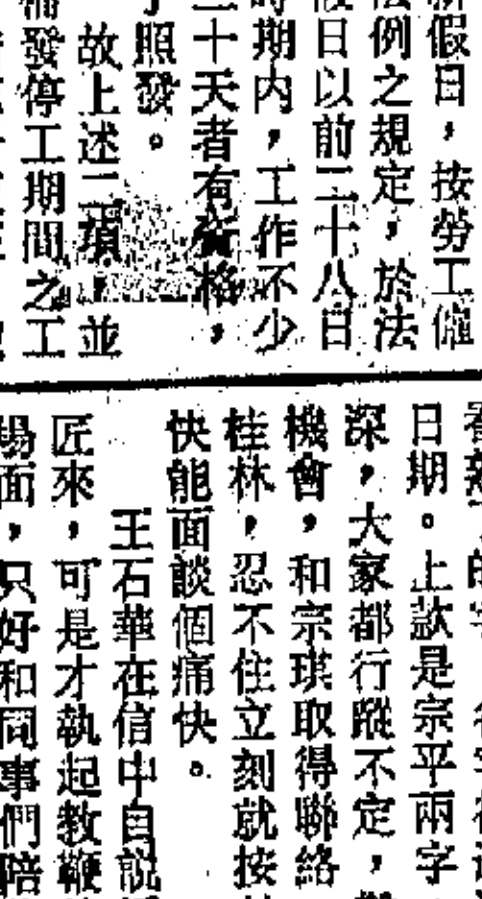 假日，按勞工僱
法例之規定，於法
假日以前二十八日
時期内，工作不少
二十天者有資格，
照發。
故上述二項，並
發停工期間之工
日期。上款是宗平兩字
深，大家都行蹤不定，
機會，和宗琪取得聯絡
桂林，忍不住立刻就按
快能面談個痛快。
王石華在信中自說
匠來，可是才執起教鞭
場面，只好和同事們陪